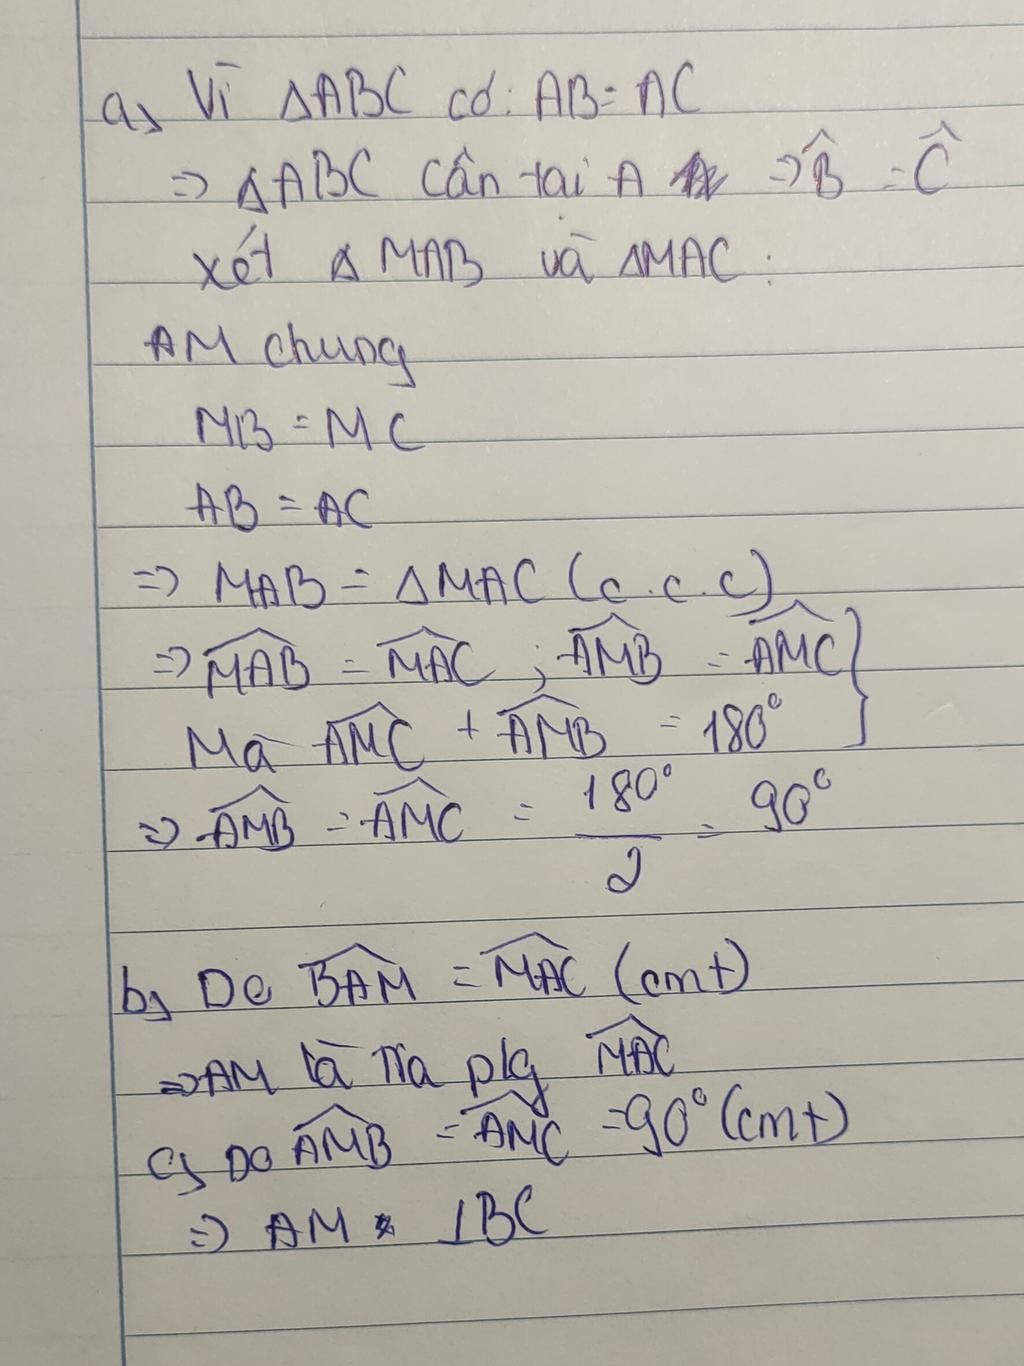 a, Vì ΔABC có: AB = AC
=> ΔABC cân tai A => B̂ = Ĉ
xét Δ MAB và ΔMAC:
AM chung
MB = MC
AB = AC
=> MAB = ΔMAC (c.c.c)
=> \widehat{MAB} = \widehat{MAC} ; \widehat{AMB} = \widehat{AMC} }
Mà \widehat{AMC} + \widehat{AMB} = 180°
=> \widehat{AMB} = \widehat{AMC} = \frac{180°}{2} = 90°
b, Do \widehat{BAM} = \widehat{MAC} (cmt)
=> AM là tia plg \widehat{MAC}
c, Do \widehat{AMB} = \widehat{AMC} = 90° (cmt)
=> AM ⊥ BC